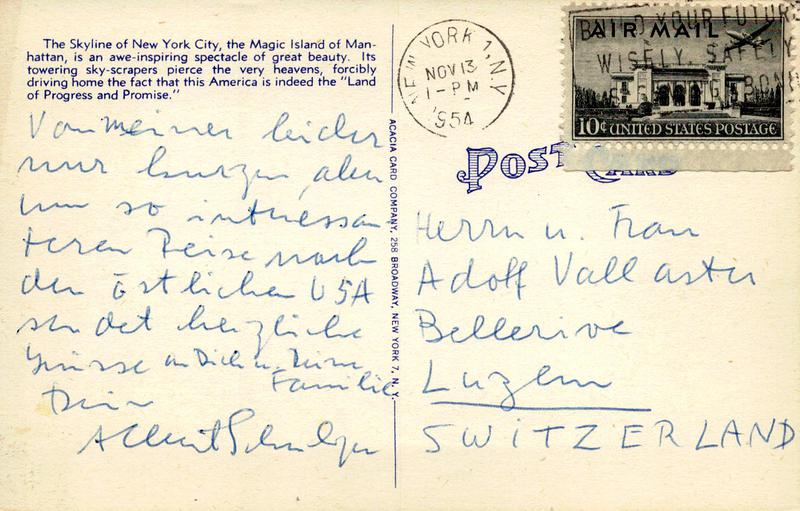 The Skyline of New York City, the Magic Island of Man-
hattan, is an awe-inspiring spectacle of great beauty. Its
towering sky-scrapers pierce the very heavens, forcibly
driving home the fact that this America is indeed the "Land
of Progress and Promise."
Von meiner leider
nur kurzen, aber
um so interessan
teren Reise nach
den östlichen USA
sendet herzliche
Grüsse an Dich u. Deine
Familie
Dein
Albert
ACACIA CARD COMPANY, 258 BROADWAY, NEW YORK 7, N. Y.
NEW YORK 1, N.Y.
NOV 13
1-PM
1954
AIR MAIL
YOUR FUTURE
WISELY, SAFELY
BONDS
10¢ UNITED STATES POSTAGE
POST CARD
Herrn u. Frau
Adolf Vallaster
Bellerive
Luzern
SWITZERLAND